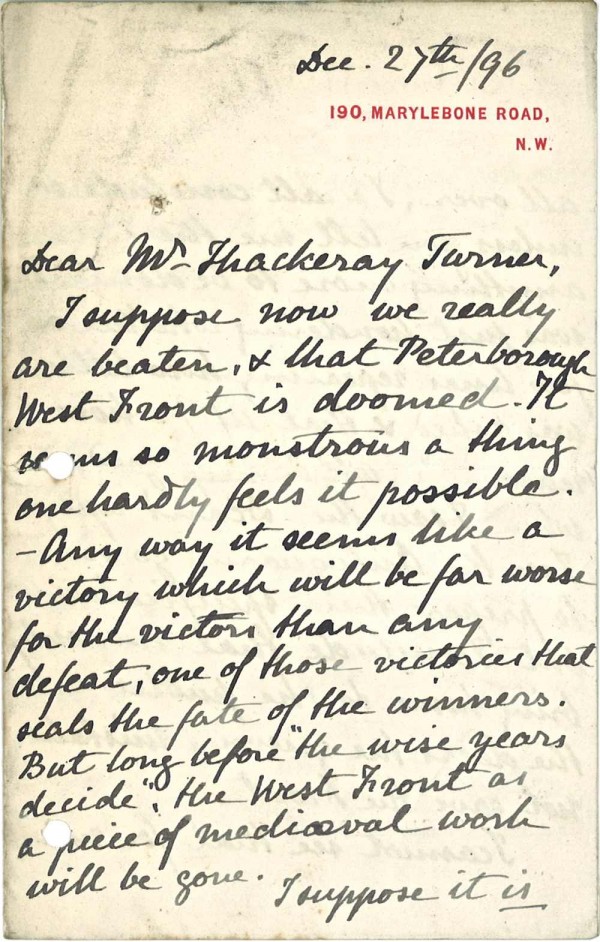 Dec. 27th/96
190, MARYLEBONE ROAD,
N.W.
Dear Mr Thackeray Turner,
I suppose now we really
are beaten, & that Peterborough
West Front is doomed. It
seems so monstrous a thing
one hardly feels it possible.
- Any way it seems like a
victory which will be far worse
for the victors than any
defeat, one of those victories that
seals the fate of the winners.
But long before "the wise years
decide", the West Front as
a piece of mediæval work
will be gone.
I suppose it is